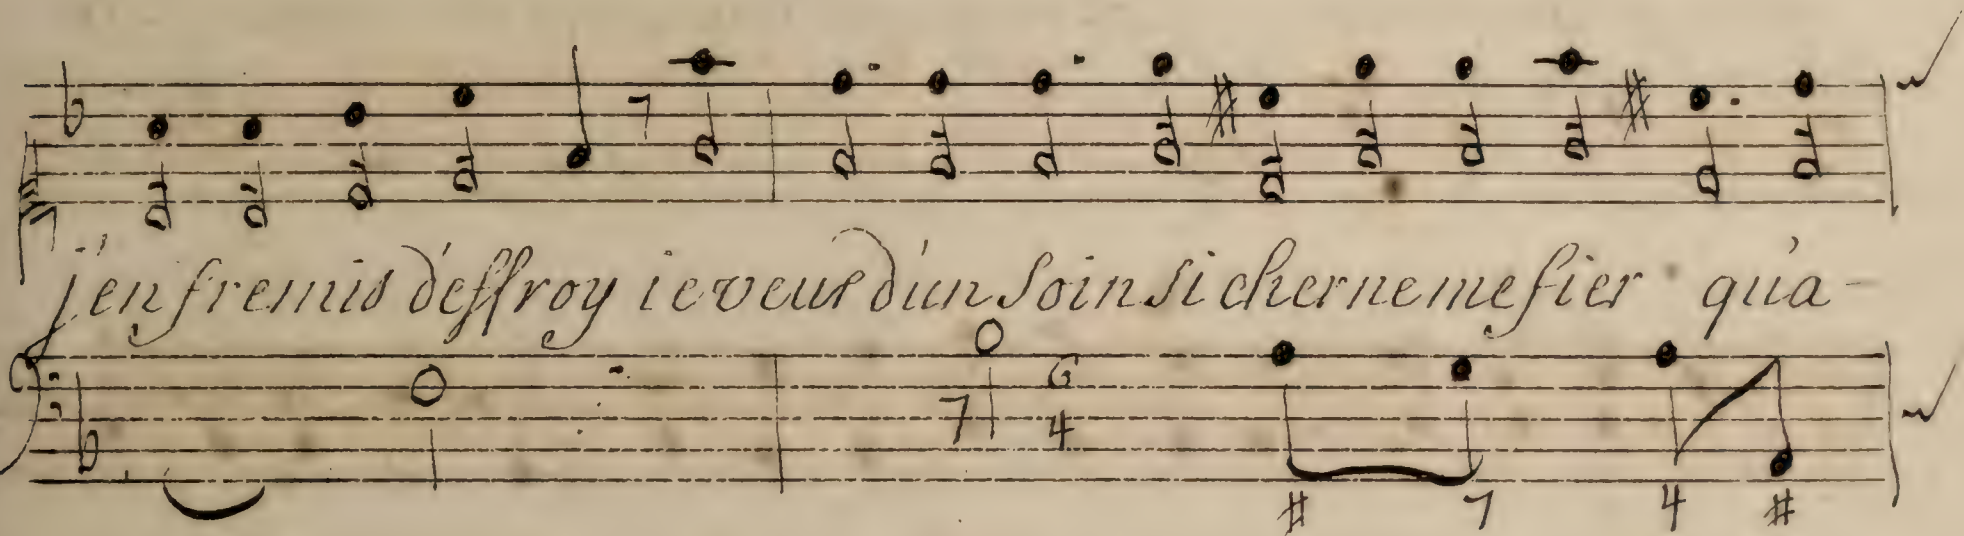 j'en fremis d'effroy ie veux d'un soin si cher ne me fier qu'a-
7 6
4
# 7 4 #